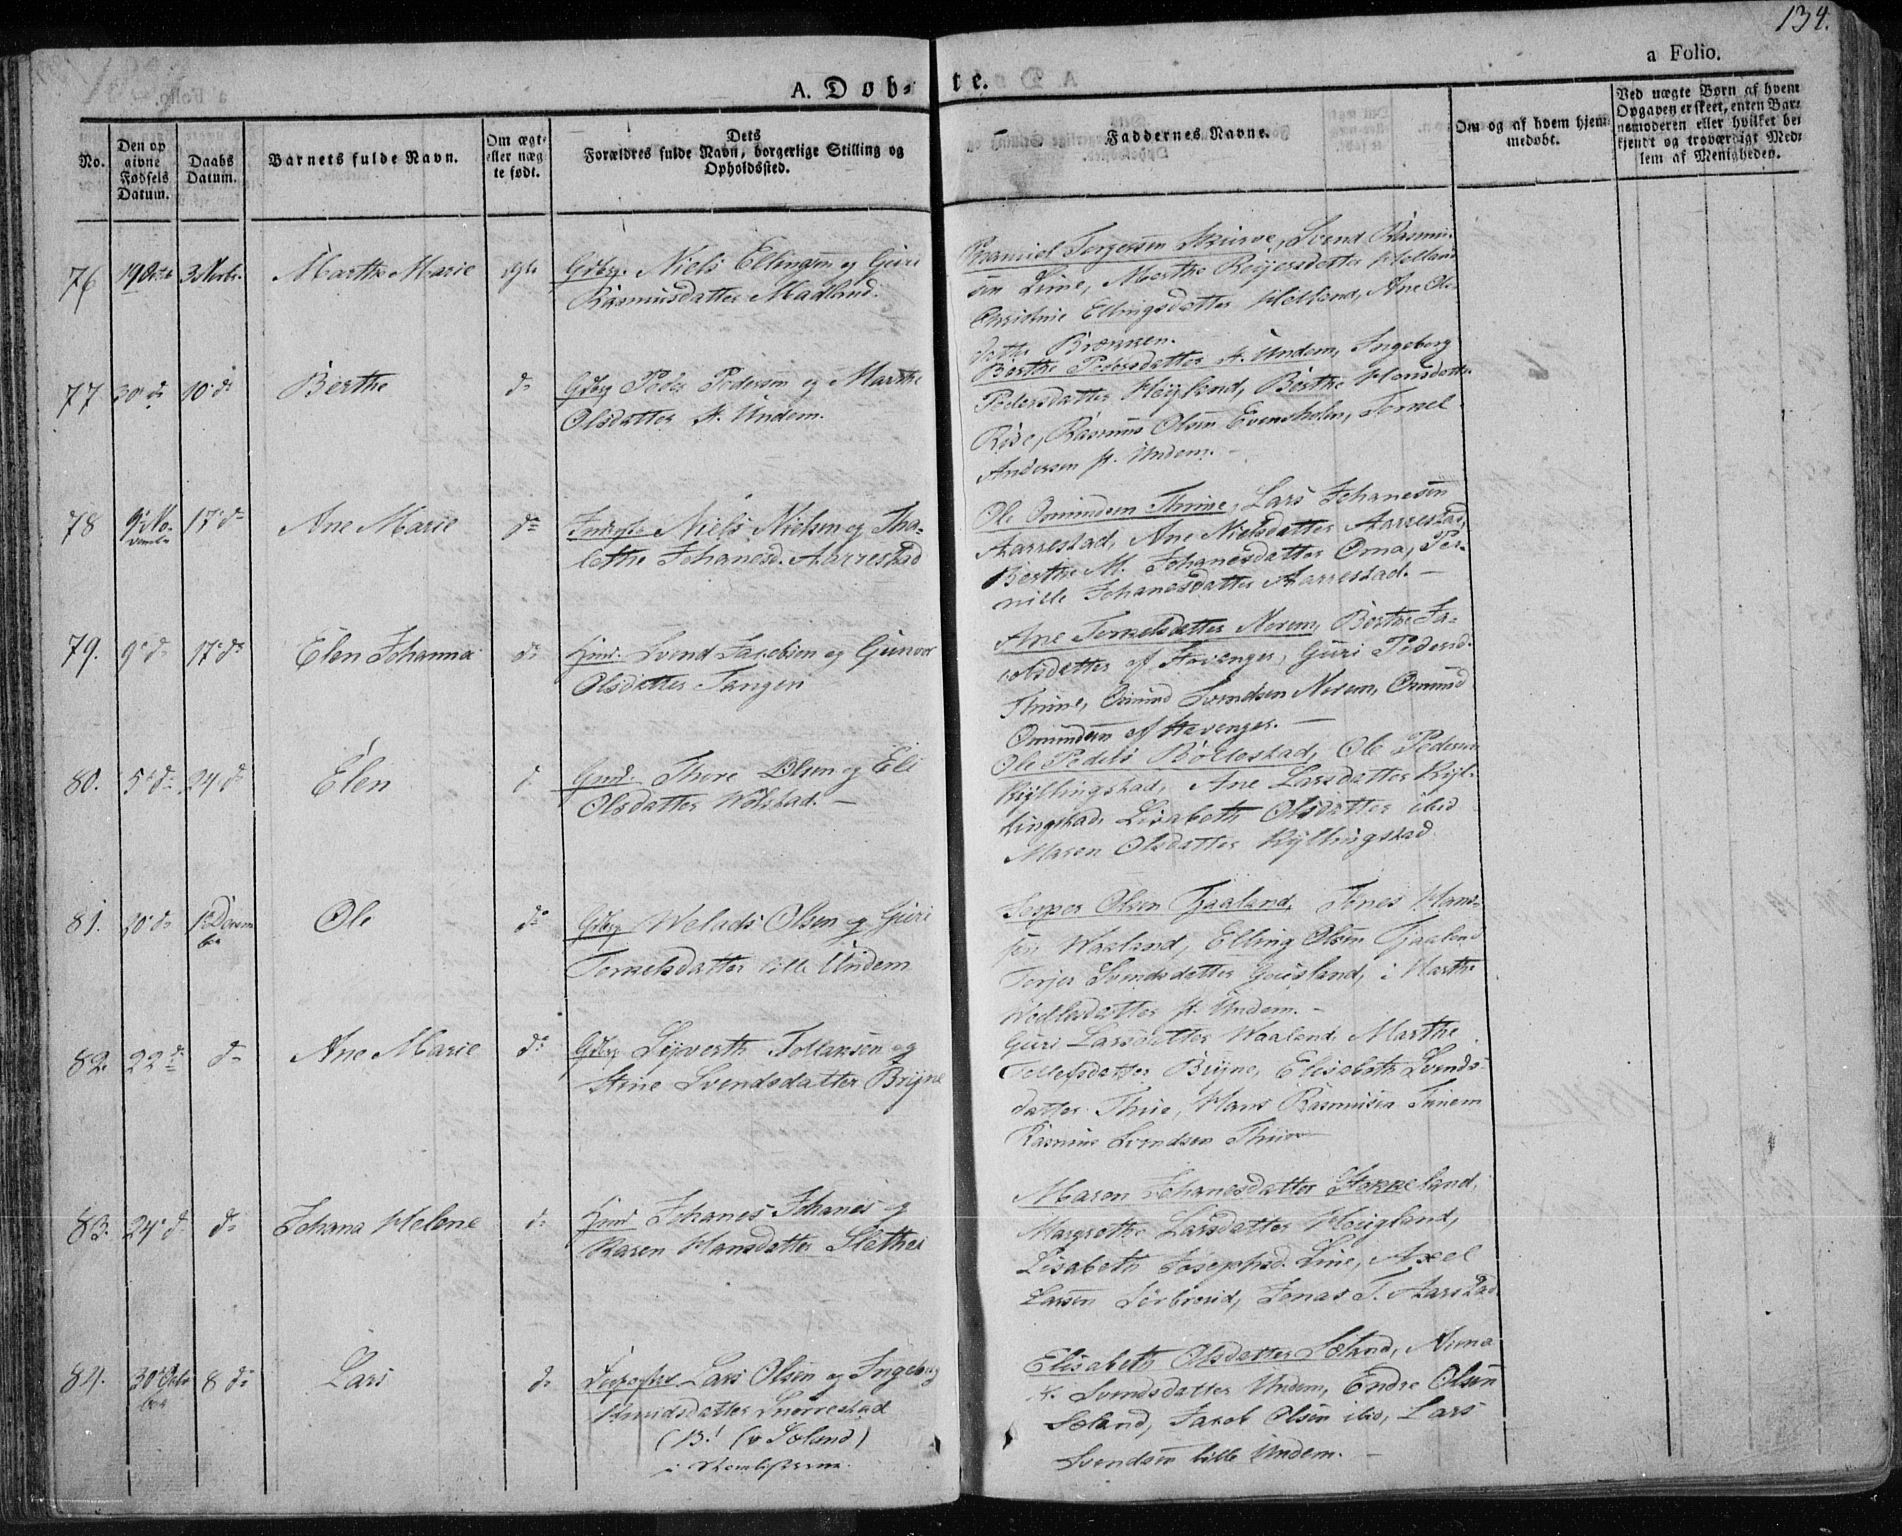 134.
a Folio.
A. Døb-
te.
No.
Den op
givne
Fødsels
Datum.
Daabs
Datum.
Barnets fulde Navn.
Om ægte
eller uæg
te født.
Dets
Forældres fulde Navn, borgerlige Stilling og
Opholdssted.
Faddernes Navne.
Om og af hvem hjem
medøbt.
Ved uægte Børn af hvem
Opgaven er skeet, enten Bar-
nemoderen eller hvilket be
kjendt og troværdigt Med-
lem af Menigheden.
76 19 Octr 3 Novbr. Marthe Marie
Gdbrg. Niels Ellingsen og Guri
Rasmusdatter Madland.
Torgersen Skurve, Svend Rasmu-
sen Lime, Marthe Reijersdatter Helland
Christine Ellingsdatter Helland, Ane Ols
datter Brønnen.
77 30 d 10 d Berthe d
Gdbrg Peder Pedersen og Marthe
Olsdatter st. Undem.
Berthe Pedersdatter st. Undem, Ingeborg
Pedersdatter Høyland, Berthe Hansdatter
Rise, Rasmus Olsen Evensholm, Tormel
Andersen st. Undem. -
78 9 No-
vembr 17 d Ane Marie d
Niels Nielsen og Tha-
lethe Johanesd. Aarrestad
Ole Omundsen Thime, Lars Johanesen
Aarrestad, Ane Nielsdatter Aarrestad,
Berthe M. Johanesdatter Oma, Per-
nille Johanesdatter Aarrestad. -
79. 9 d 17 d Elen Johanna d
Hmd. Svend Jacobsen og Gunvor
Olsdatter Tangen
Ane Tormelsdatter Norem, Berthe Ja-
cobsdatter af Stavanger, Guri Pedersd.
Thime, Omund Svendsen Norem, Omund
Omundsen af Stavanger. -
80. 5 d 24 d Elen d
Thore Olsen og Eli
Olsdatter Wølstad. -
Ole Peders Bollestad, Ole Pedersen
Kyllingstad, Ane Larsdatter Kyl-
lingstad, Lisabeth Olsdatter ibid
Maren Olsdatter Kyllingstad
81. 20 d 1 Decem
ber Ole d
Gdbrg Welads Olsen og Guri
Tormelsdatter lille Undem
Jesper Olsen Tjaaland, Tønes Han-
sen Waaland, Elling Olsen Tjaaland
Torjer Svendsdatter Gousland, i Marthe
Wedlesdatter st. Undem. -
82. 22 d d Ane Marie d
Gdbrg Sijverth Tollaksen og
Stine Svendsdatter Bryne
Guri Larsdatter Waaland, Marthe
Tollefsdatter Bryne, Elisabeth Svends-
datter Thue, Hans Rasmusen Tunem
Rasmus Svendsen Thuu
83. 24 d d Johana Helene d
Hmd Johanes Johanes og
Karen Hansdatter Slethei
Maren Johanesdatter Stokkeland,
Margrethe Larsdatter Hougland,
Lisabeth Josephsd. Line, Axel
Larsen Sørbroud, Jonas T. Aarstad
84. 30 Octo
ber 8 d Lars d
Lars Olsen og Ingeborg
Knudsdatter Snorrestad
Elisabeth Olsdatter Sæland, Anna
K. Svendsdatter Undem, Endre Olsen
Sæland, Jacob Olsen ibid, Lars
Svendsen lille Undem. -